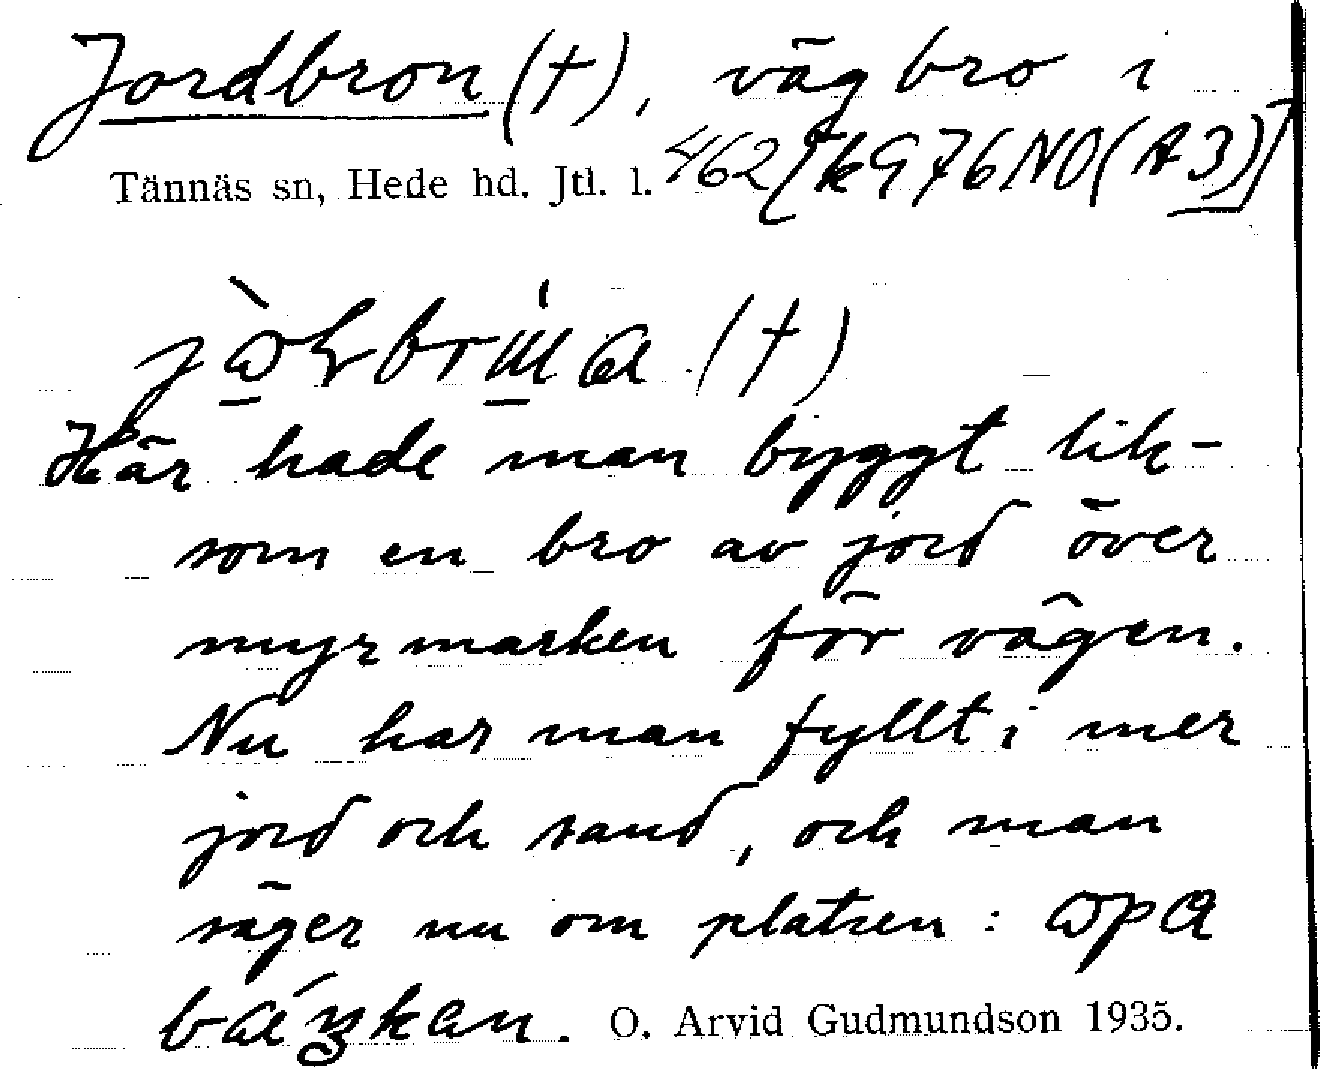 Jordbron (†), vägbro i
Tännäs sn, Hede hd. Jtl. l. 462 [k976NO(A3)]
(†)
Här hade man byggt lik-
som en bro av jord över
myrmarken för vägen.
Nu har man fyllt i mer
jord och sand, och man
säger nu om platsen:
O. Arvid Gudmundson 1935.